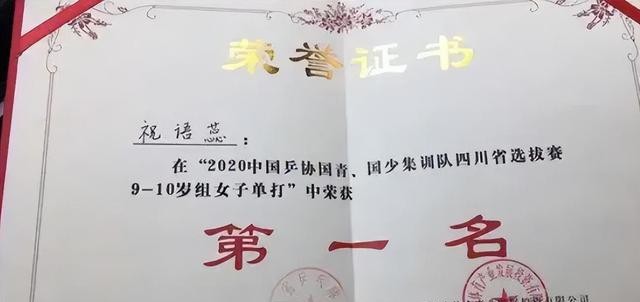 荣誉证书
祝语蕊：
在“2020中国乒协国青、国少集训队四川省选拔赛
9-10岁组女子单打”中荣获
第一名